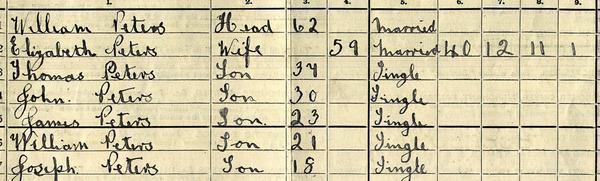 1. 2. 3. 4. 5. 6. 7. 8. 9.
1 William Peters Head 62 Married
2 Elizabeth Peters Wife 59 Married 40 12 11 1
3 Thomas Peters Son 34 Single
4 John Peters Son 30 Single
5 James Peters Son 23 Single
6 William Peters Son 21 Single
7 Joseph Peters Son 18 Single